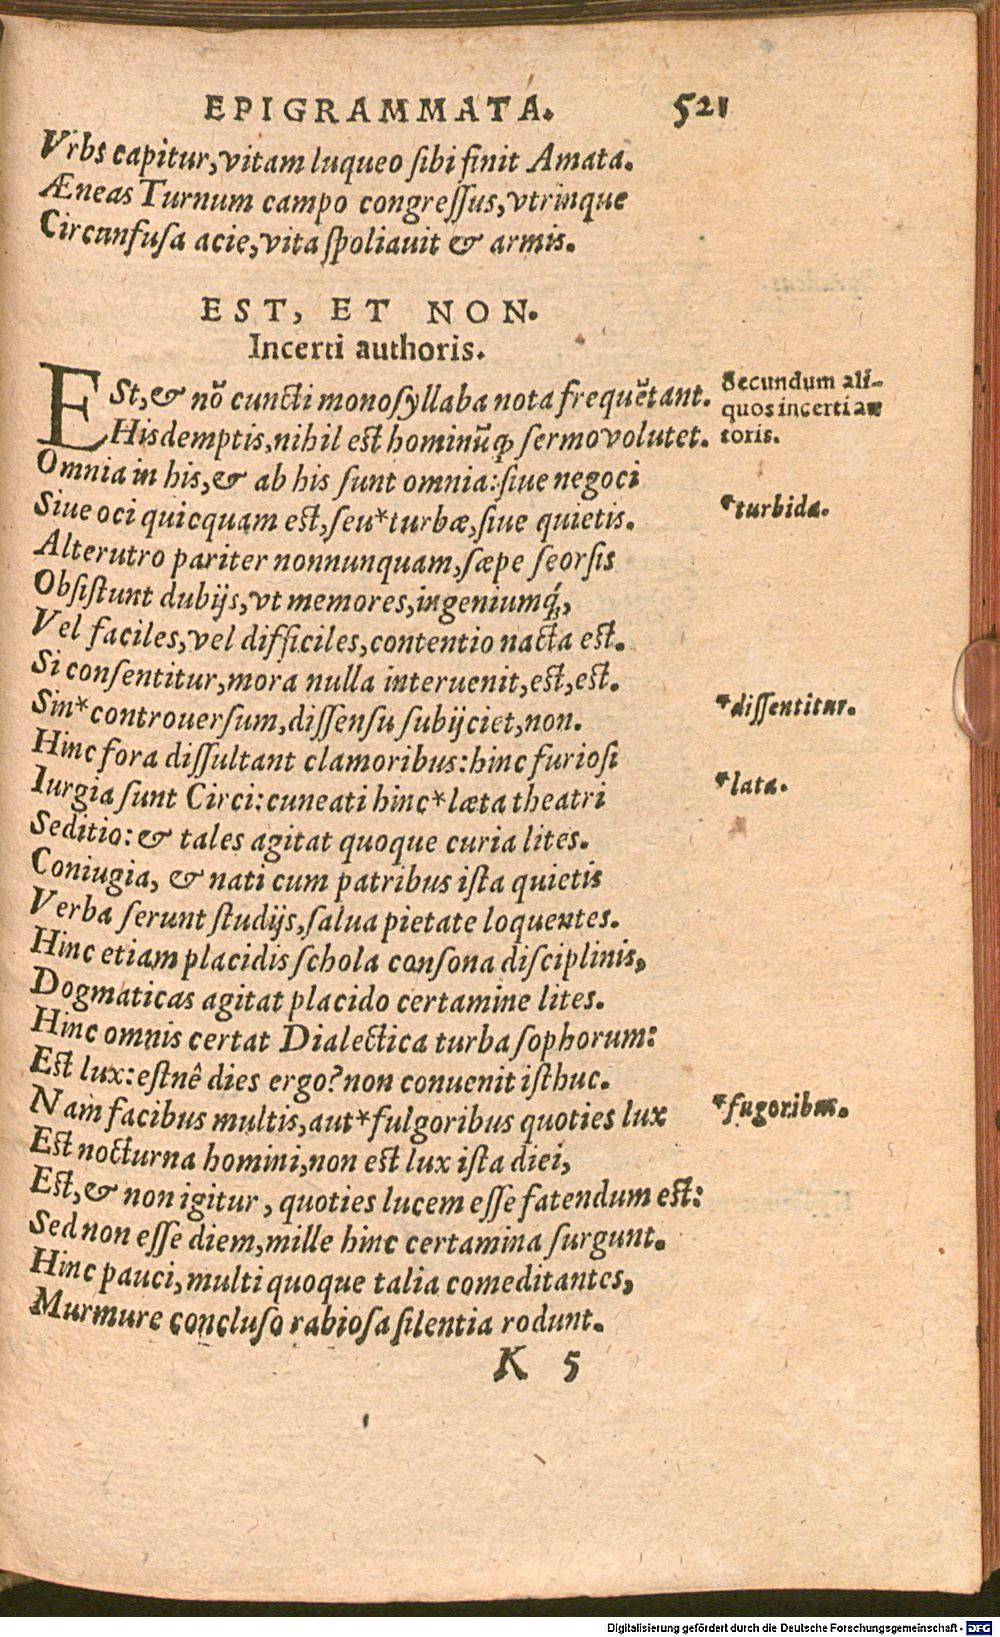 EPIGRAMMATA. 521
Vrbs capitur, vitam luqueo ſibi finit Amata.
Æneas Turnum campo congreſſus, vtrinque
Circunfuſa acie, vita ſpoliauit & armis.
EST, ET NON.
Incerti authoris.
ESt, & nõ cuncti monoſyllaba nota frequẽtant.
Hisdemptis, nihil est hominũꝙ ſermo volutet.
Omnia in his, & ab his ſunt omnia: ſiue negoci
Siue oci quicquam est, ſeu*turbæ, ſiue quietis.
Alterutro pariter nonnunquam, ſæpe ſeorſis
Obſiſtunt dubijs, vt memores, ingeniumq́;,
Vel faciles, vel difficiles, contentio nacta est.
Si conſentitur, mora nulla interuenit, est, est.
Sin*controuerſum, diſſenſu ſubijciet, non.
Hinc fora diſſultant clamoribus: hinc furioſi
Iurgia ſunt Circi: cuneati hinc*læta theatri
Seditio: & tales agitat quoque curia lites.
Coniugia, & nati cum patribus iſta quietis
Verba ſerunt ſtudijs, ſalua pietate loquentes.
Hinc etiam placidis ſchola conſona diſciplinis,
Dogmaticas agitat placido certamine lites.
Hinc omnis certat Dialectica turba ſophorum:
Est lux: eſtnê dies ergo? non conuenit iſthuc.
Nam facibus multis, aut*fulgoribus quoties lux
Est nocturna homini, non est lux iſta diei,
Est, & non igitur, quoties lucem eſſe fatendum est:
Sed non eſſe diem, mille hinc certamina ſurgunt.
Hinc pauci, multi quoque talia comeditantes,
Murmure concluſo rabioſa ſilentia rodunt.
K 5
Secundum ali-
quos incerti au
toris.
*turbida.
*diſſentitur.
*lata.
*fugoribus.
Digitalisierung gefördert durch die Deutsche Forschungsgemeinschaft - DFG